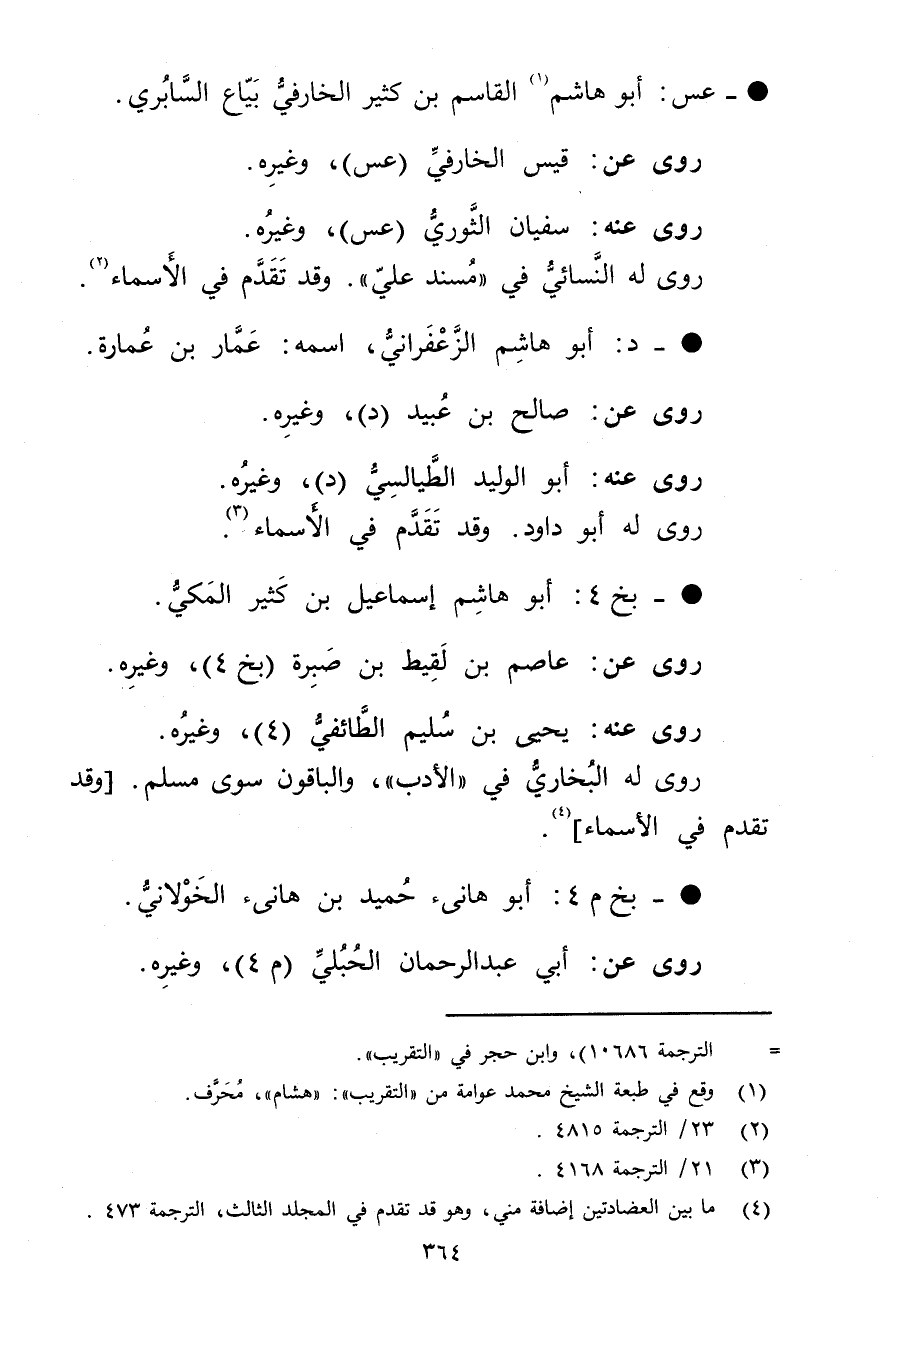 ● ـ عس: أبو هاشم(١) القاسم بن كثير الخارفيُّ بَيّاع السَّابُري.
روى عن: قيس الخارفيِّ (عس)، وغيرِه.
روى عنه: سفيان الثَّوريُّ (عس)، وغيرُه.
روى له النَّسائيُّ في «مُسند عليّ». وقد تَقَدَّم في الأَسماء(٢).
● ـ د: أبو هاشِم الزَّعْفَرانيُّ، اسمه: عَمَّار بن عُمارة.
روى عن: صالح بن عُبيد (د)، وغيرِه.
روى عنه: أبو الوليد الطَّيالسِيُّ (د)، وغيرُه.
روى له أبو داود. وقد تَقَدَّم في الأَسماء(٣).
● ـ بخ ٤: أبو هاشِم إسماعيل بن كَثير المَكيُّ.
روى عن: عاصم بن لَقِيط بن صَبِرة (بخ ٤)، وغيرِه.
روى عنه: يحيى بن سُليم الطَّائفيُّ (٤)، وغيرُه.
روى له البُخاريُّ في «الأدب»، والباقون سوى مسلم. [وقد
تقدم في الأسماء](٤).
● ـ بخ م ٤: أبو هانىء حُميد بن هانىء الخَوْلانيُّ.
روى عن: أبي عبدالرحمان الحُبُليِّ (م ٤)، وغيرِه.
= الترجمة ١٠٦٨٦)، وابن حجر في «التقريب».
(١) وقع في طبعة الشيخ محمد عوامة من «التقريب»: «هشام»، مُحَرَّف.
(٢) ٢٣/ الترجمة ٤٨١٥ .
(٣) ٢١/ الترجمة ٤١٦٨ .
(٤) ما بين العضادتين إضافة مني، وهو قد تقدم في المجلد الثالث، الترجمة ٤٧٣ .
٣٦٤